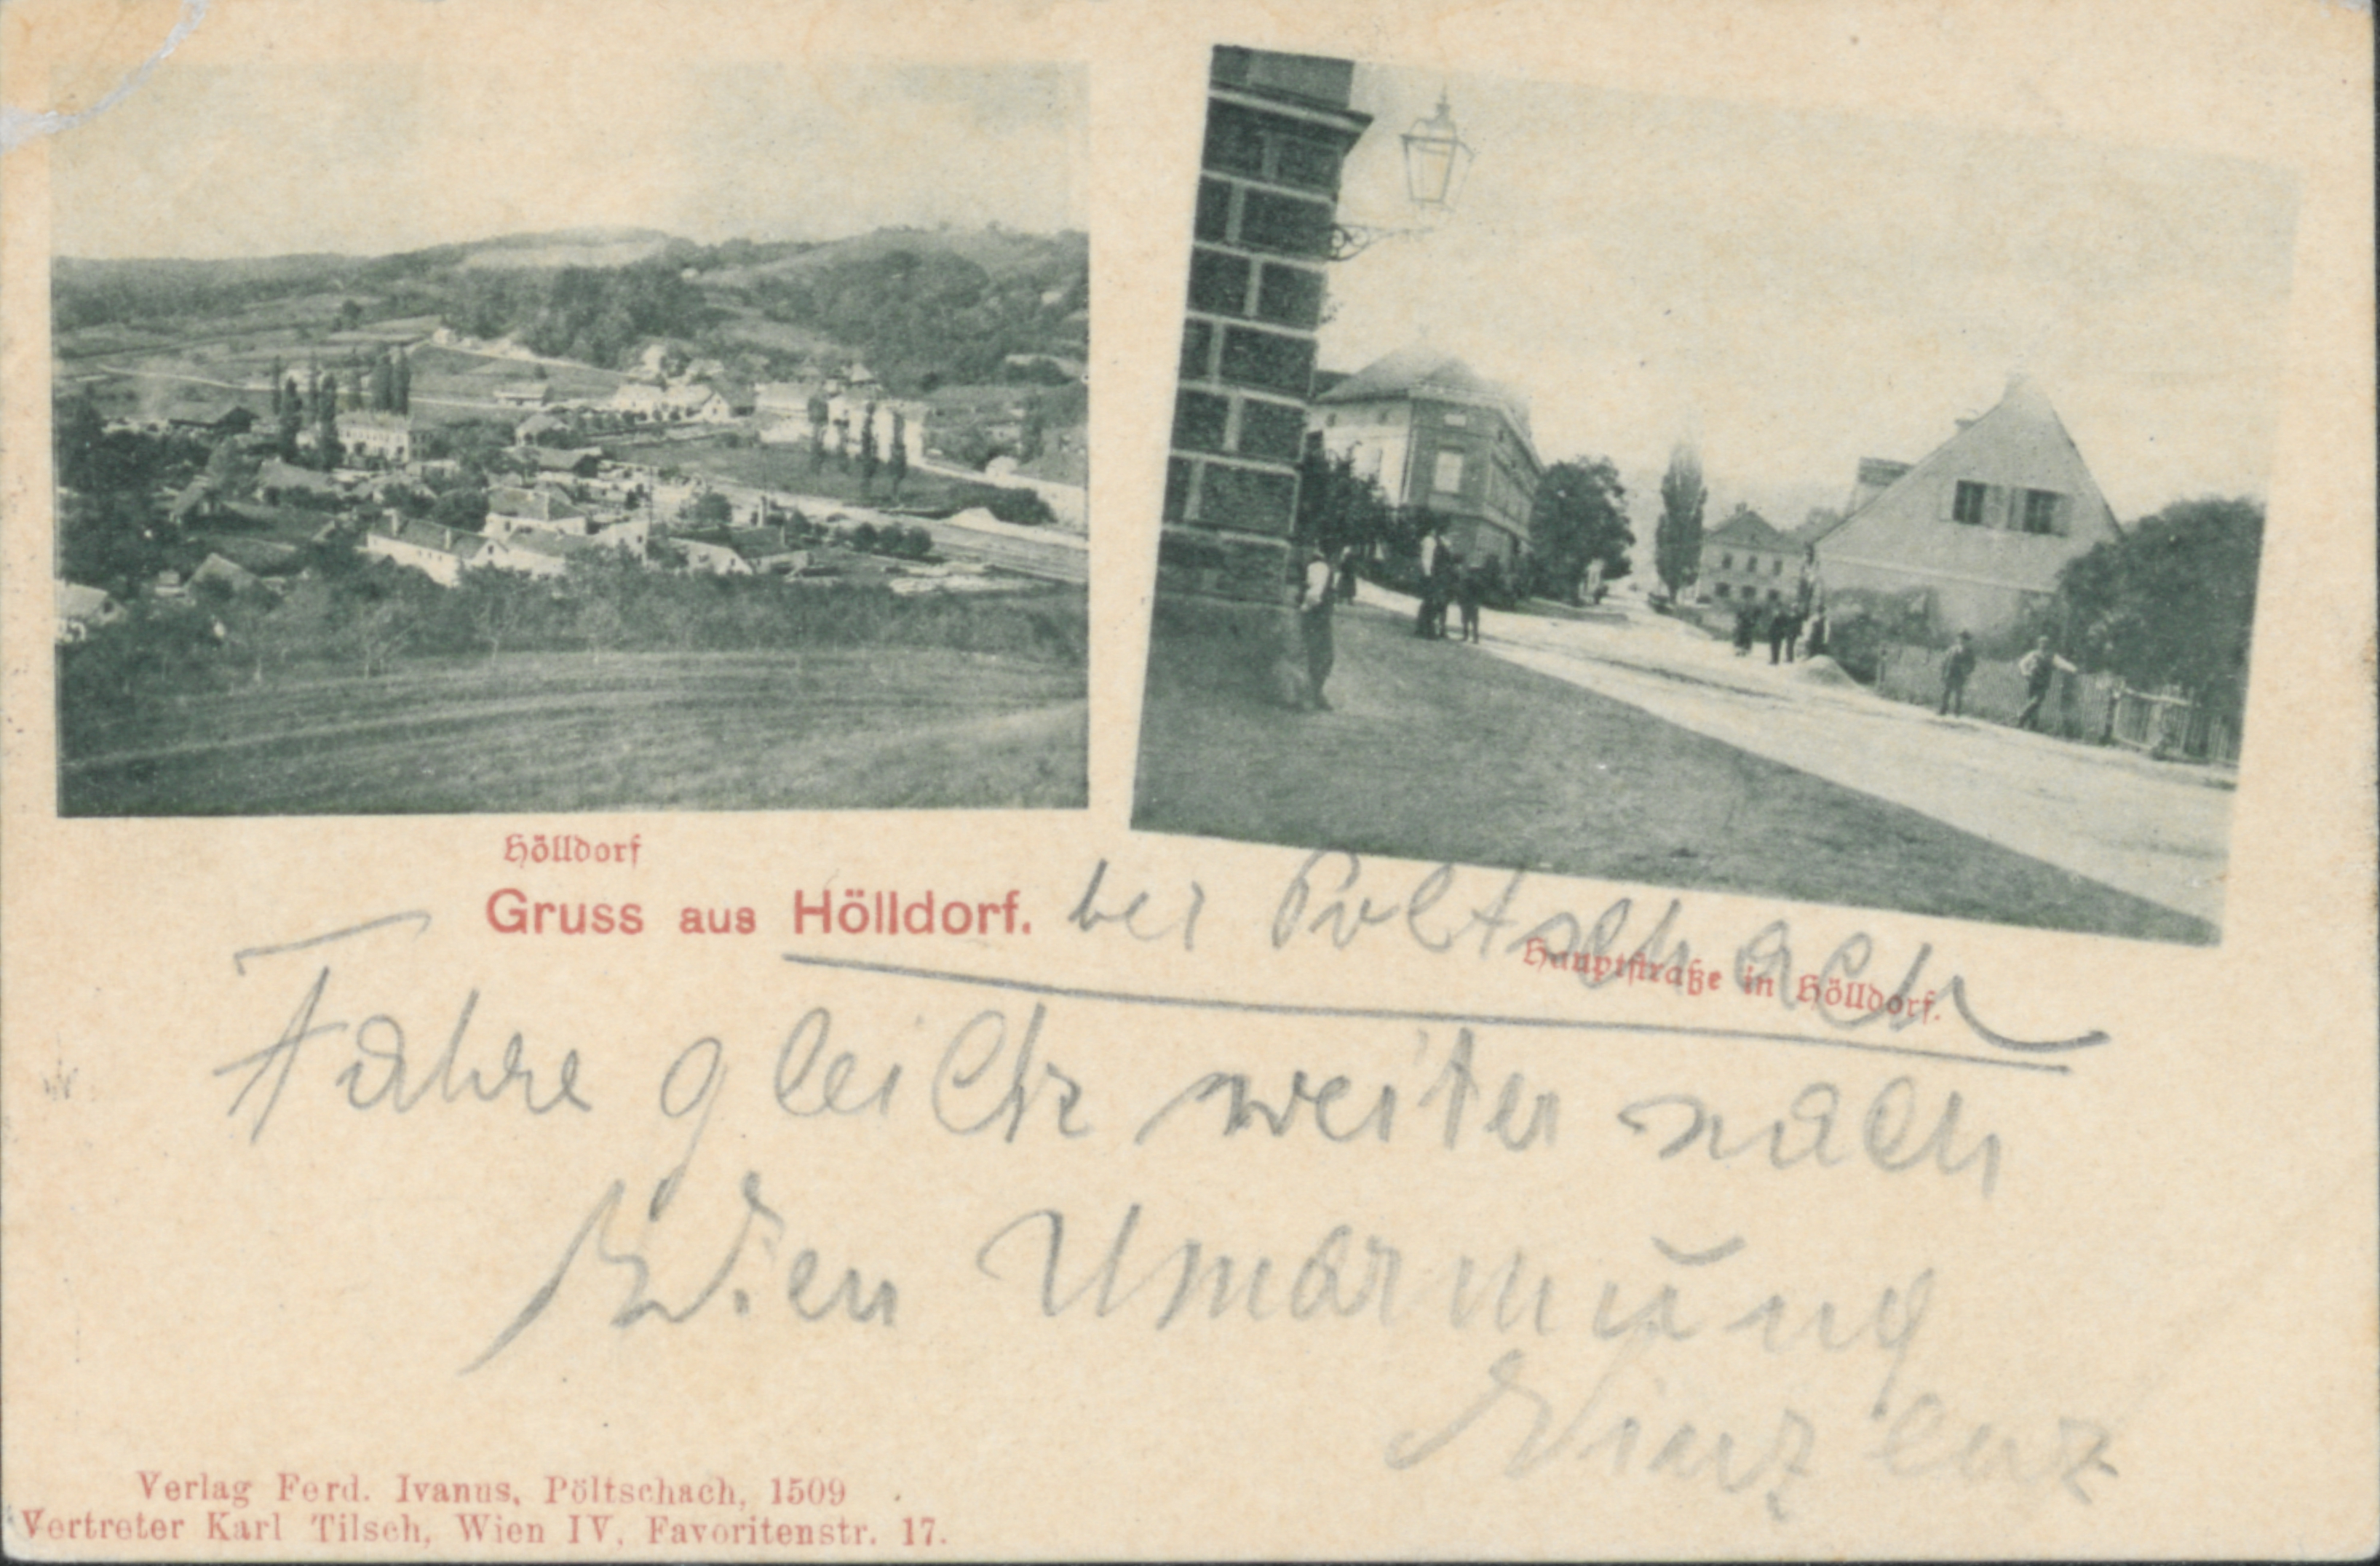 Hölldorf
Gruss aus Hölldorf. bei Poltschach
Hauptstraße in Hölldorf.
Fahre gleich weiter nach
Wien Umarmung
Vinzenz
Verlag Ferd. Ivanus, Pöltschach, 1509
Vertreter Karl Tilsch, Wien IV, Favoritenstr. 17.